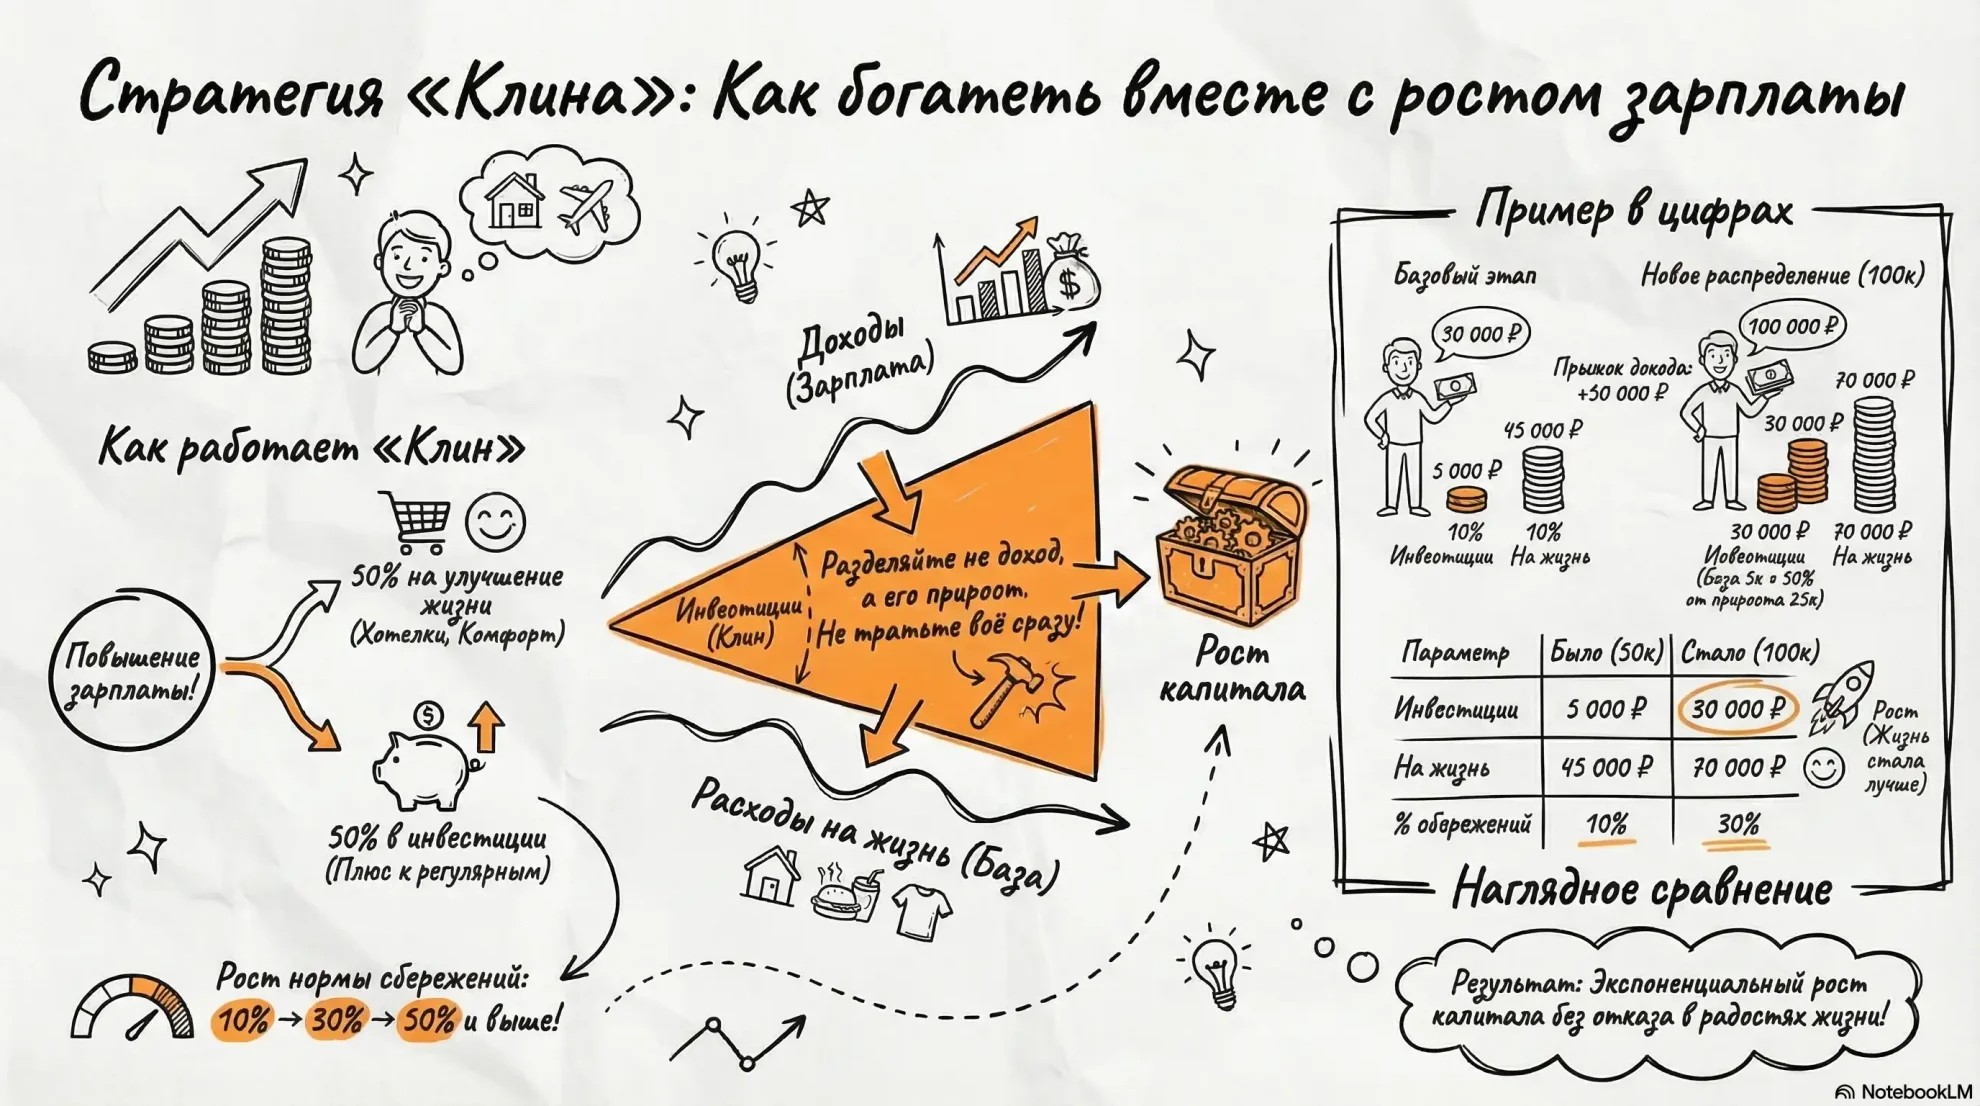 Стратегия «Клина»: Как богатеть вместе с ростом зарплаты
Как работает «Клин»
Повышение
зарплаты!
50% на улучшение
жизни
(Хотелки, Комфорт)
$
50% в инвестиции
(Плюс к регулярным)
Рост нормы сбережений:
10% → 30% → 50% и выше!
Доходы
(Зарплата)
$
Инвеотиции
(Клин)
Разделяйте не доход,
а его прироот.
Не тратьте воё сразу!
Расходы на жизнь (База)
Рост
капитала
Пример в цифрах
Базовый этап
30 000 ₽
5 000 ₽
45 000 ₽
10%
Инвеотиции
10%
На жизнь
Новое распределение (100к)
100 000 ₽
Прыжок дохода:
+50 000 ₽
30 000 ₽
70 000 ₽
30 000 ₽
Иовеотиции
(База 5к о 50%
от прироота 25к)
70 000 ₽
На жизнь
Параметр Было (50к) Стало (100к)
Инвестиции 5 000 ₽ 30 000 ₽
На жизнь 45 000 ₽ 70 000 ₽
% обережений 10% 30%
Рост
(Жизнь
стала
лучше)
Наглядное сравнение
Результат: Экспоненциальный рост
капитала без отказа в радостях жизни!
NotebookLM